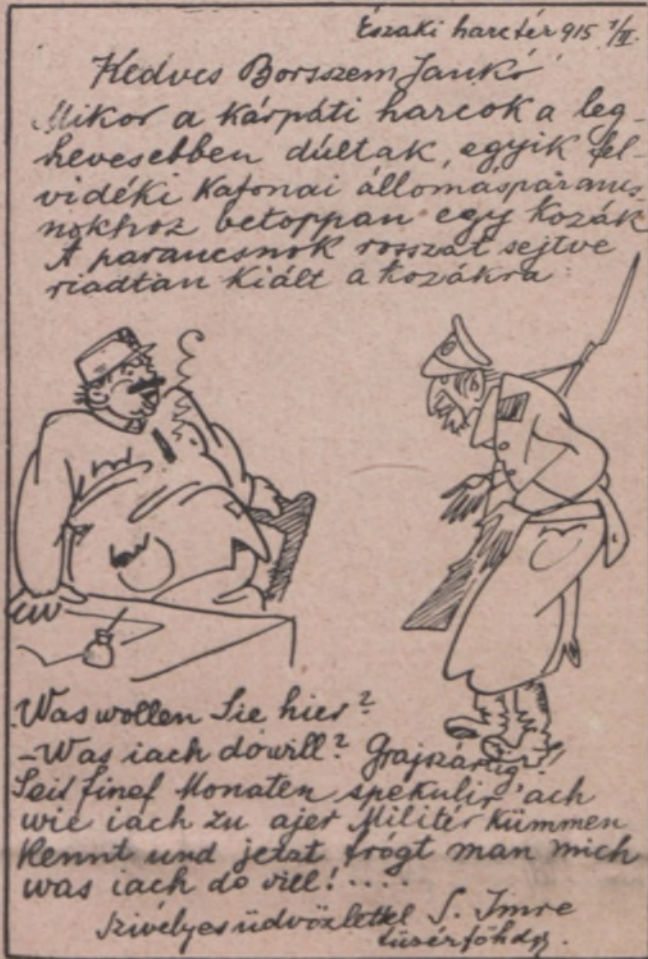 Északi harctér 915 7/II.
Kedves Borsszem Jankó
Mikor a kárpáti harcok a leg-
hevesebben dúltak, egyik fel-
vidéki katonai állomásparancs-
nokhoz betoppan egy kozák
A parancsnok rosszat sejtve
riadtan kiált a kozákra:
Was wollen Sie hier?
– Was iach do will? Grajszárug!
Seit finef Monaten spekulir'ach
wie iach zu ajer Militer kümmen
kennt und jetzt frógt man mich
was iach do vill!....
Szivélyes üdvözlettel S. Imre
tüzérfőhdgy.